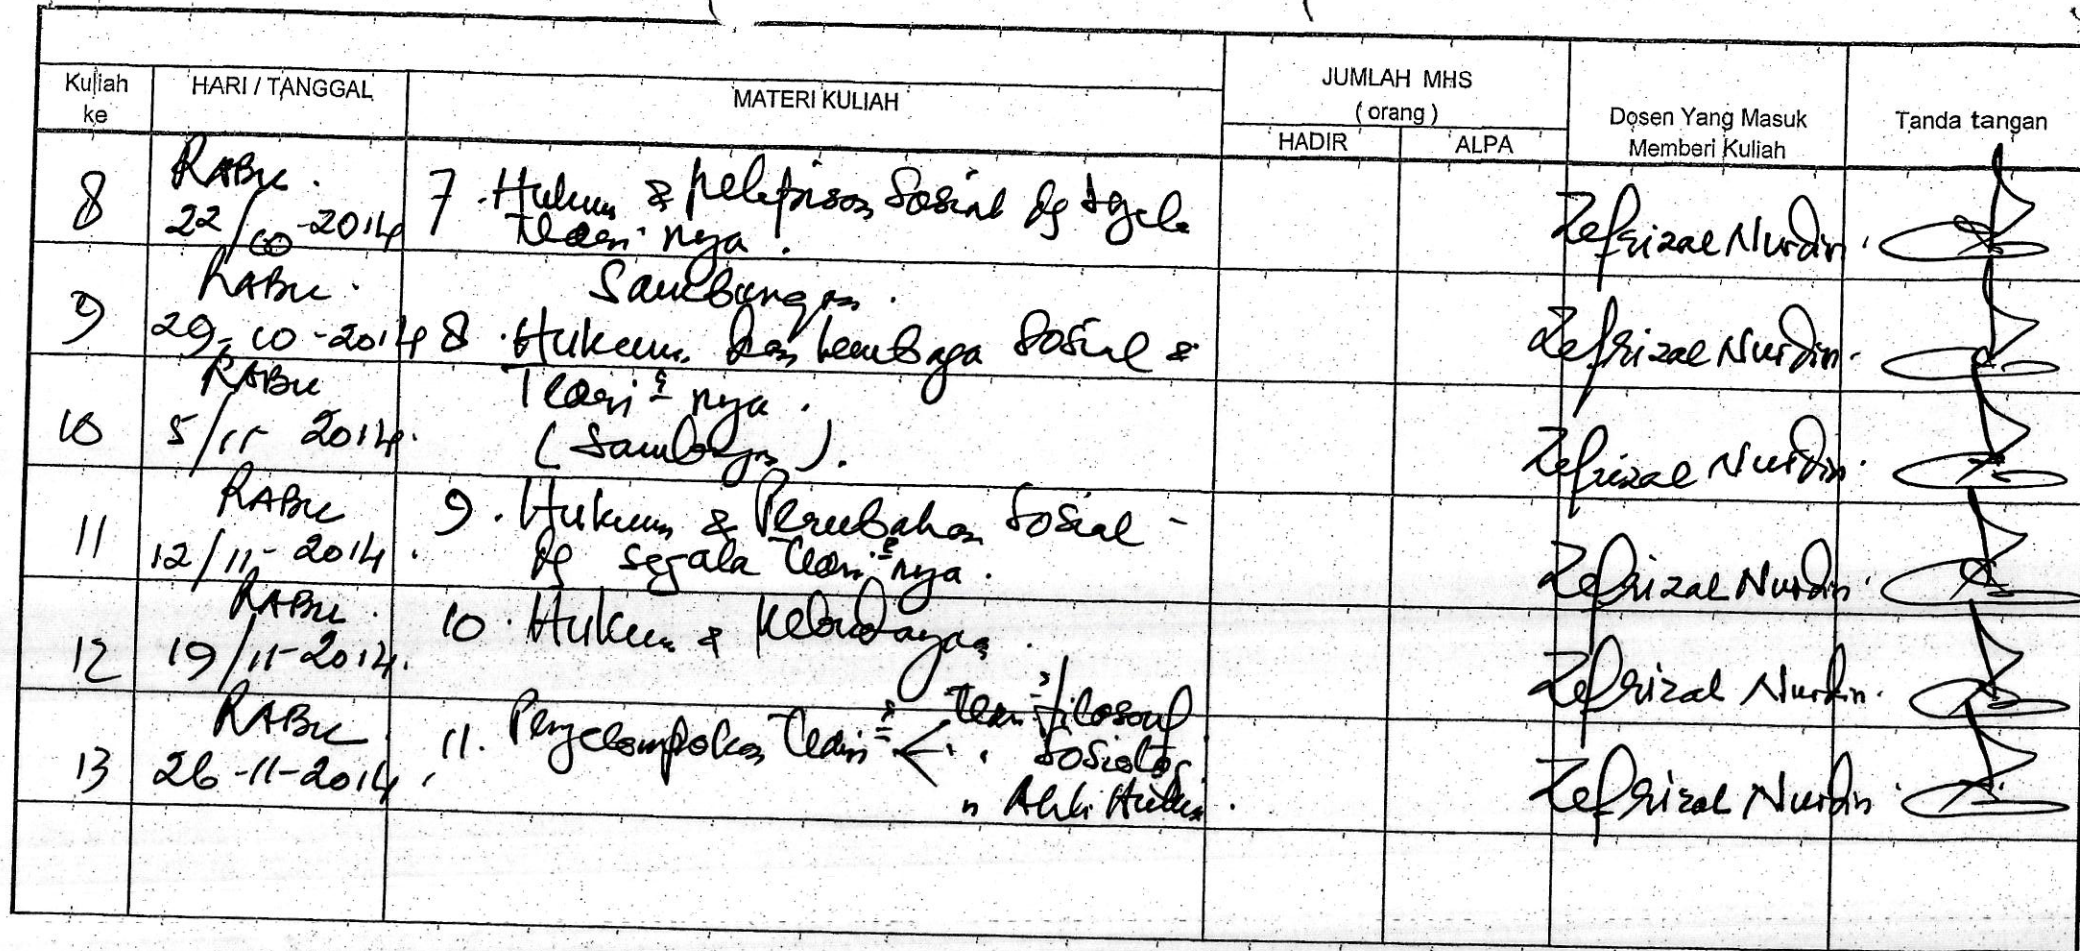 Kuliah ke
HARI / TANGGAL
MATERI KULIAH
JUMLAH MHS
( orang )
HADIR
ALPA
Dosen Yang Masuk
Memberi Kuliah
Tanda tangan
8
RABU.
22/10-2014
7. Hukum & pelapisan Sosial dg sgala
Teori nya.
Zefrizal Nurdin.
Sambungan.
9
RABU.
29-10-2014
8. Hukum dan Lembaga Sosial &
Zefrizal Nurdin.
Teori² nya.
10
RABU
5/11 2014.
(Sambungan).
Zefrizal Nurdin.
11
RABU
12/11-2014.
9. Hukum & Perubahan Sosial -
dg segala Teori² nya.
Zefrizal Nurdin.
12
RABU.
19/11-2014.
10. Hukum & Kebudayaan.
Zefrizal Nurdin.
13
RABU
26-11-2014.
11. Pengelompokan Teori² < Teori² filosouf
" Sosiolog
" Ahli Hukum.
Zefrizal Nurdin.